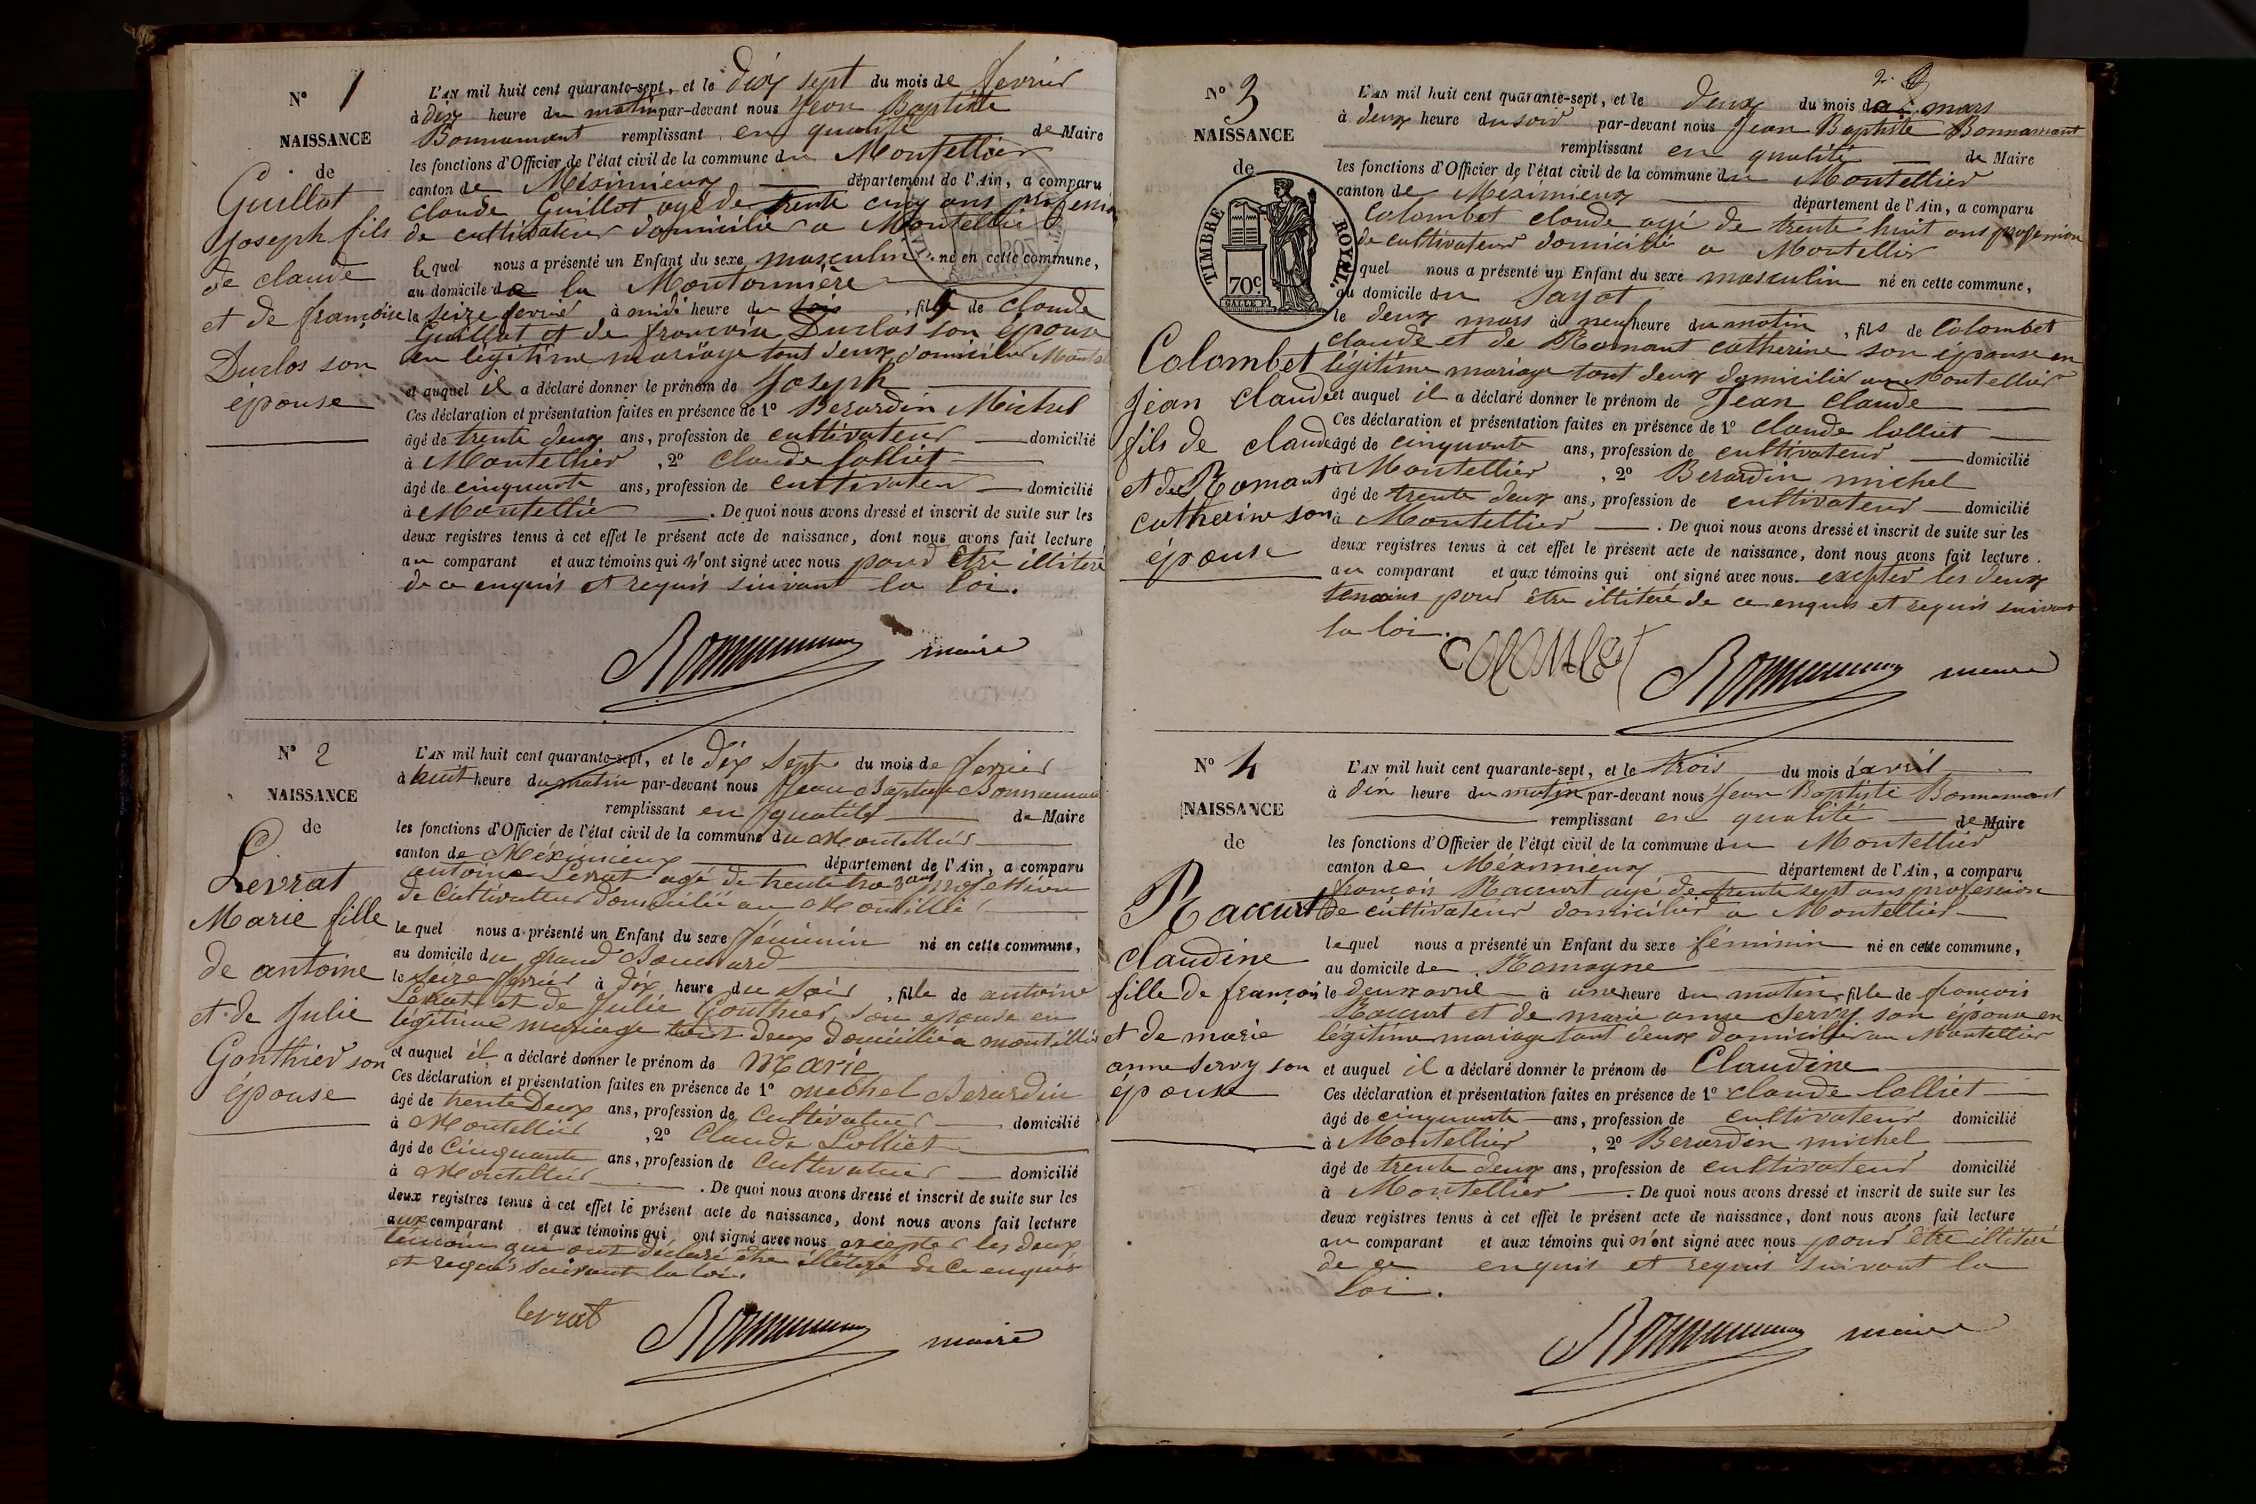 N° 1
NAISSANCE
de
Guillot
Joseph fils
de claude
et de françoise
Duclos son
épouse
L'AN mil huit cent quarante-sept, et le dix sept du mois de fevrier
à dix heure du matin par-devant nous Jean Baptiste
Bonnamant remplissant en qualité de Maire
les fonctions d'Officier de l'état civil de la commune du Montellier
canton de Méximieux département de l'Ain, a comparu
claude Guillot agé de trente cinq ans profession
de cultivateur domicilié a Montellier
lequel nous a présenté un Enfant du sexe masculin né en cette commune,
au domicile de la Montonnière
le seize fevrié à midi heure du soir, fils de claude
Guillot et de francoise Duclos son épouse
en légitime mariage tout deux domicilier
et auquel il a déclaré donner le prénom de Joseph
Ces déclaration et présentation faites en présence de 1° Berardin Michel
âgé de trente deux ans, profession de cultivateur domicilié
à Montellier, 2° Claude Lolliet
âgé de cinquante ans, profession de cultivateur domicilié
à Montellié. De quoi nous avons dressé et inscrit de suite sur les
deux registres tenus à cet effet le présent acte de naissance, dont nous avons fait lecture
au comparant et aux témoins qui n'ont signé avec nous pour être illiteré
de ce enquis et requis suivant la loi.
maire
N° 2
NAISSANCE
de
Levrat
Marie fille
de antoine
et de Julie
Gonthier son
épouse
L'AN mil huit cent quarante-sept, et le dix sept du mois de fevrier
à huit heure du matin par-devant nous Jean Baptiste Bonnamant
remplissant en qualité de Maire
les fonctions d'Officier de l'état civil de la commune du Montellier
canton de Méximieux département de l'Ain, a comparu
antoine Levrat agé de trente trois ans profession
de cultivateur domicilié au Montellié
lequel nous a présenté un Enfant du sexe féminin né en cette commune,
au domicile du grand
le seize fevrier à dix heure du soir, fille de antoine
Levrat et de Julie Gonthier son epouse en
légitime mariage tout deux domicilié a montellier
et auquel il a déclaré donner le prénom de Marie
Ces déclaration et présentation faites en présence de 1° michel Berardin
âgé de trente Deux ans, profession de cultivateur domicilié
à Montellier, 2° Claude Lolliet
âgé de Cinquante ans, profession de cultivateur domicilié
à Montellier. De quoi nous avons dressé et inscrit de suite sur les
deux registres tenus à cet effet le présent acte de naissance, dont nous avons fait lecture
aux comparant et aux témoins qui ont signé avec nous excepter les deux
témoin qui ont déclaré être illiteré de Ce enquis
et requis suivant la loi.
levrat
maire
2.
N° 3
NAISSANCE
de
TIMBRE ROYAL.
70c.
Colombet
Jean Claude
fils de claude
et de Romant
catherine son
épouse
L'AN mil huit cent quarante-sept, et le deux du mois de mars
à deux heure du soir par-devant nous Jean Baptiste Bonnamant
remplissant en qualité de Maire
les fonctions d'Officier de l'état civil de la commune du Montellier
canton de Méximieux département de l'Ain, a comparu
Colombet claude agé de trente huit ans profession
de cultivateur domicilié a Montellier
quel nous a présenté un Enfant du sexe masculin né en cette commune,
au domicile du Sayot
le deux mars à neuf heure du matin, fils de Colombet
claude et de Romant catherine son épouse en
légitime mariage tout deux domicilier au Montellier
et auquel il a déclaré donner le prénom de Jean Claude
Ces déclaration et présentation faites en présence de 1° claude Lolliet
âgé de cinquante ans, profession de cultivateur domicilié
à Montellier, 2° Berardin michel
âgé de trente deux ans, profession de cultivateur domicilié
à Montellier. De quoi nous avons dressé et inscrit de suite sur les
deux registres tenus à cet effet le présent acte de naissance, dont nous avons fait lecture.
au comparant et aux témoins qui ont signé avec nous. excepter les deux
temoins pour être illiteré de ce enquis et requis suivant
la loi.
Colombet
maire
N° 4
NAISSANCE
de
Raccurt
claudine
fille de françois
et de marie
anne Servy son
épouse
L'AN mil huit cent quarante-sept, et le trois du mois d'avril
à dix heure du matin par-devant nous Jean Baptiste Bonnamant
remplissant en qualité de Maire
les fonctions d'Officier de l'état civil de la commune du Montellier
canton de Méximieux département de l'Ain, a comparu
françois Raccurt agé de trente sept ans profession
de cultivateur domicilier a Montellier
lequel nous a présenté un Enfant du sexe féminin né en cette commune,
au domicile de Romagne
le deux avril à une heure du matin, fille de françois
Raccurt et de marie anne Servy son épouse en
légitime mariage tout deux domicilier au Montellier
et auquel il a déclaré donner le prénom de Claudine
Ces déclaration et présentation faites en présence de 1° claude Lolliet
âgé de cinquante ans, profession de cultivateur domicilié
à Montellier, 2° Berardin michel
âgé de trente deux ans, profession de cultivateur domicilié
à Montellier. De quoi nous avons dressé et inscrit de suite sur les
deux registres tenus à cet effet le présent acte de naissance, dont nous avons fait lecture
au comparant et aux témoins qui n'ont signé avec nous pour être illiteré
de ce enquis et requis suivant la
loi.
maire